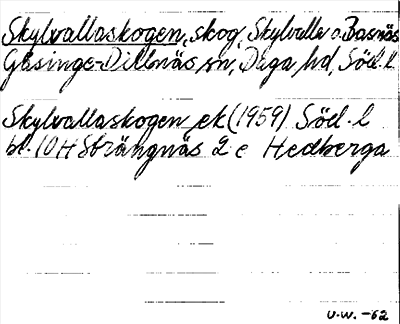 Skylvallaskogen, skog, Skylvalla o. Basnäs
Gåsinge-Dillnäs sn, Daga hd, Söd. l.
Skylvallaskogen ek (1959) Söd. l
bl. 10H Strängnäs 2 e Hedberga
U.W. -62